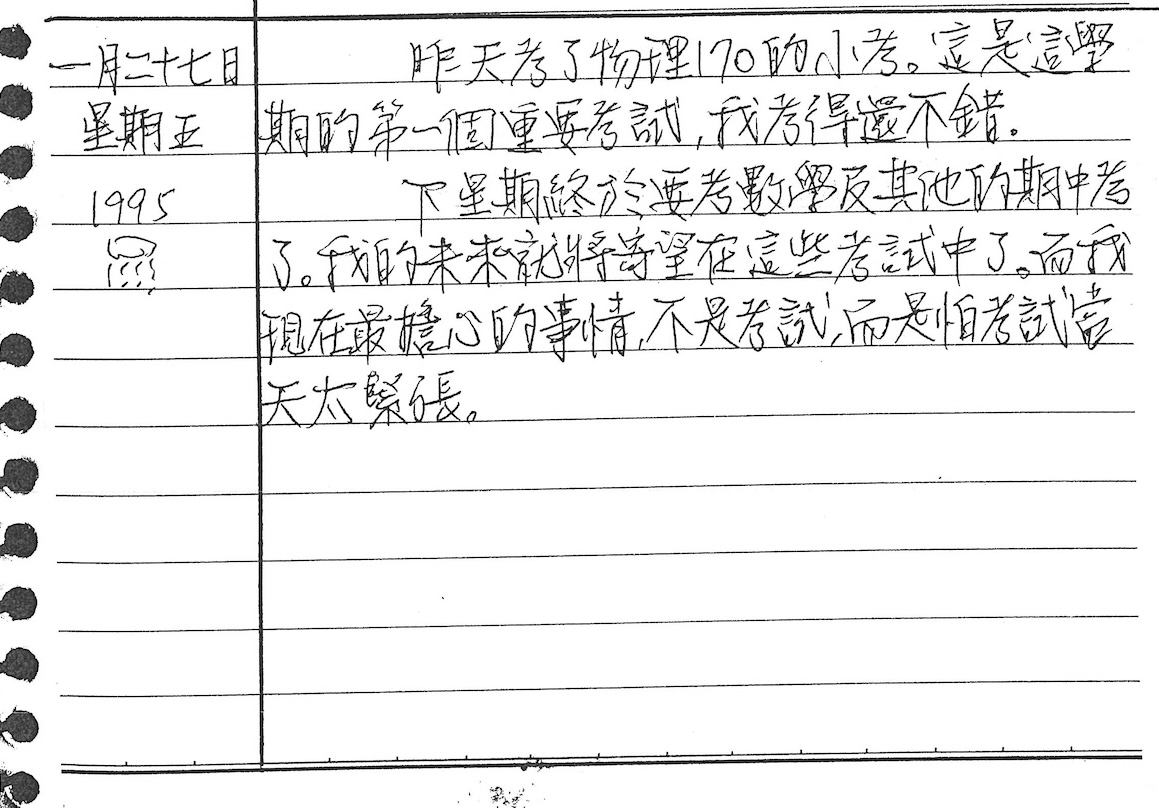 一月二十七日
星期五
1995
昨天考了物理170的小考。這是這學
期的第一個重要考試,我考得還不錯.
下星期終於要考數學及其他的期中考
了。我的未來就將寄望在這些考試中了。而我
現在最擔心的事情,不是考試,而是怕考試當
天太緊張。